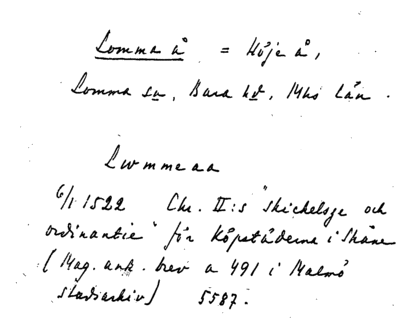 Lomma å = Höje å,
Lomma sn, Bara hd, Mhs län.
Lwmmeaa
6/1 1522 Chr. II:s "skickelsze och
ordinantie" för köpstäderna i Skåne
(Mag. ank. brev a 491 i Malmö
stadsarkiv) 5587.